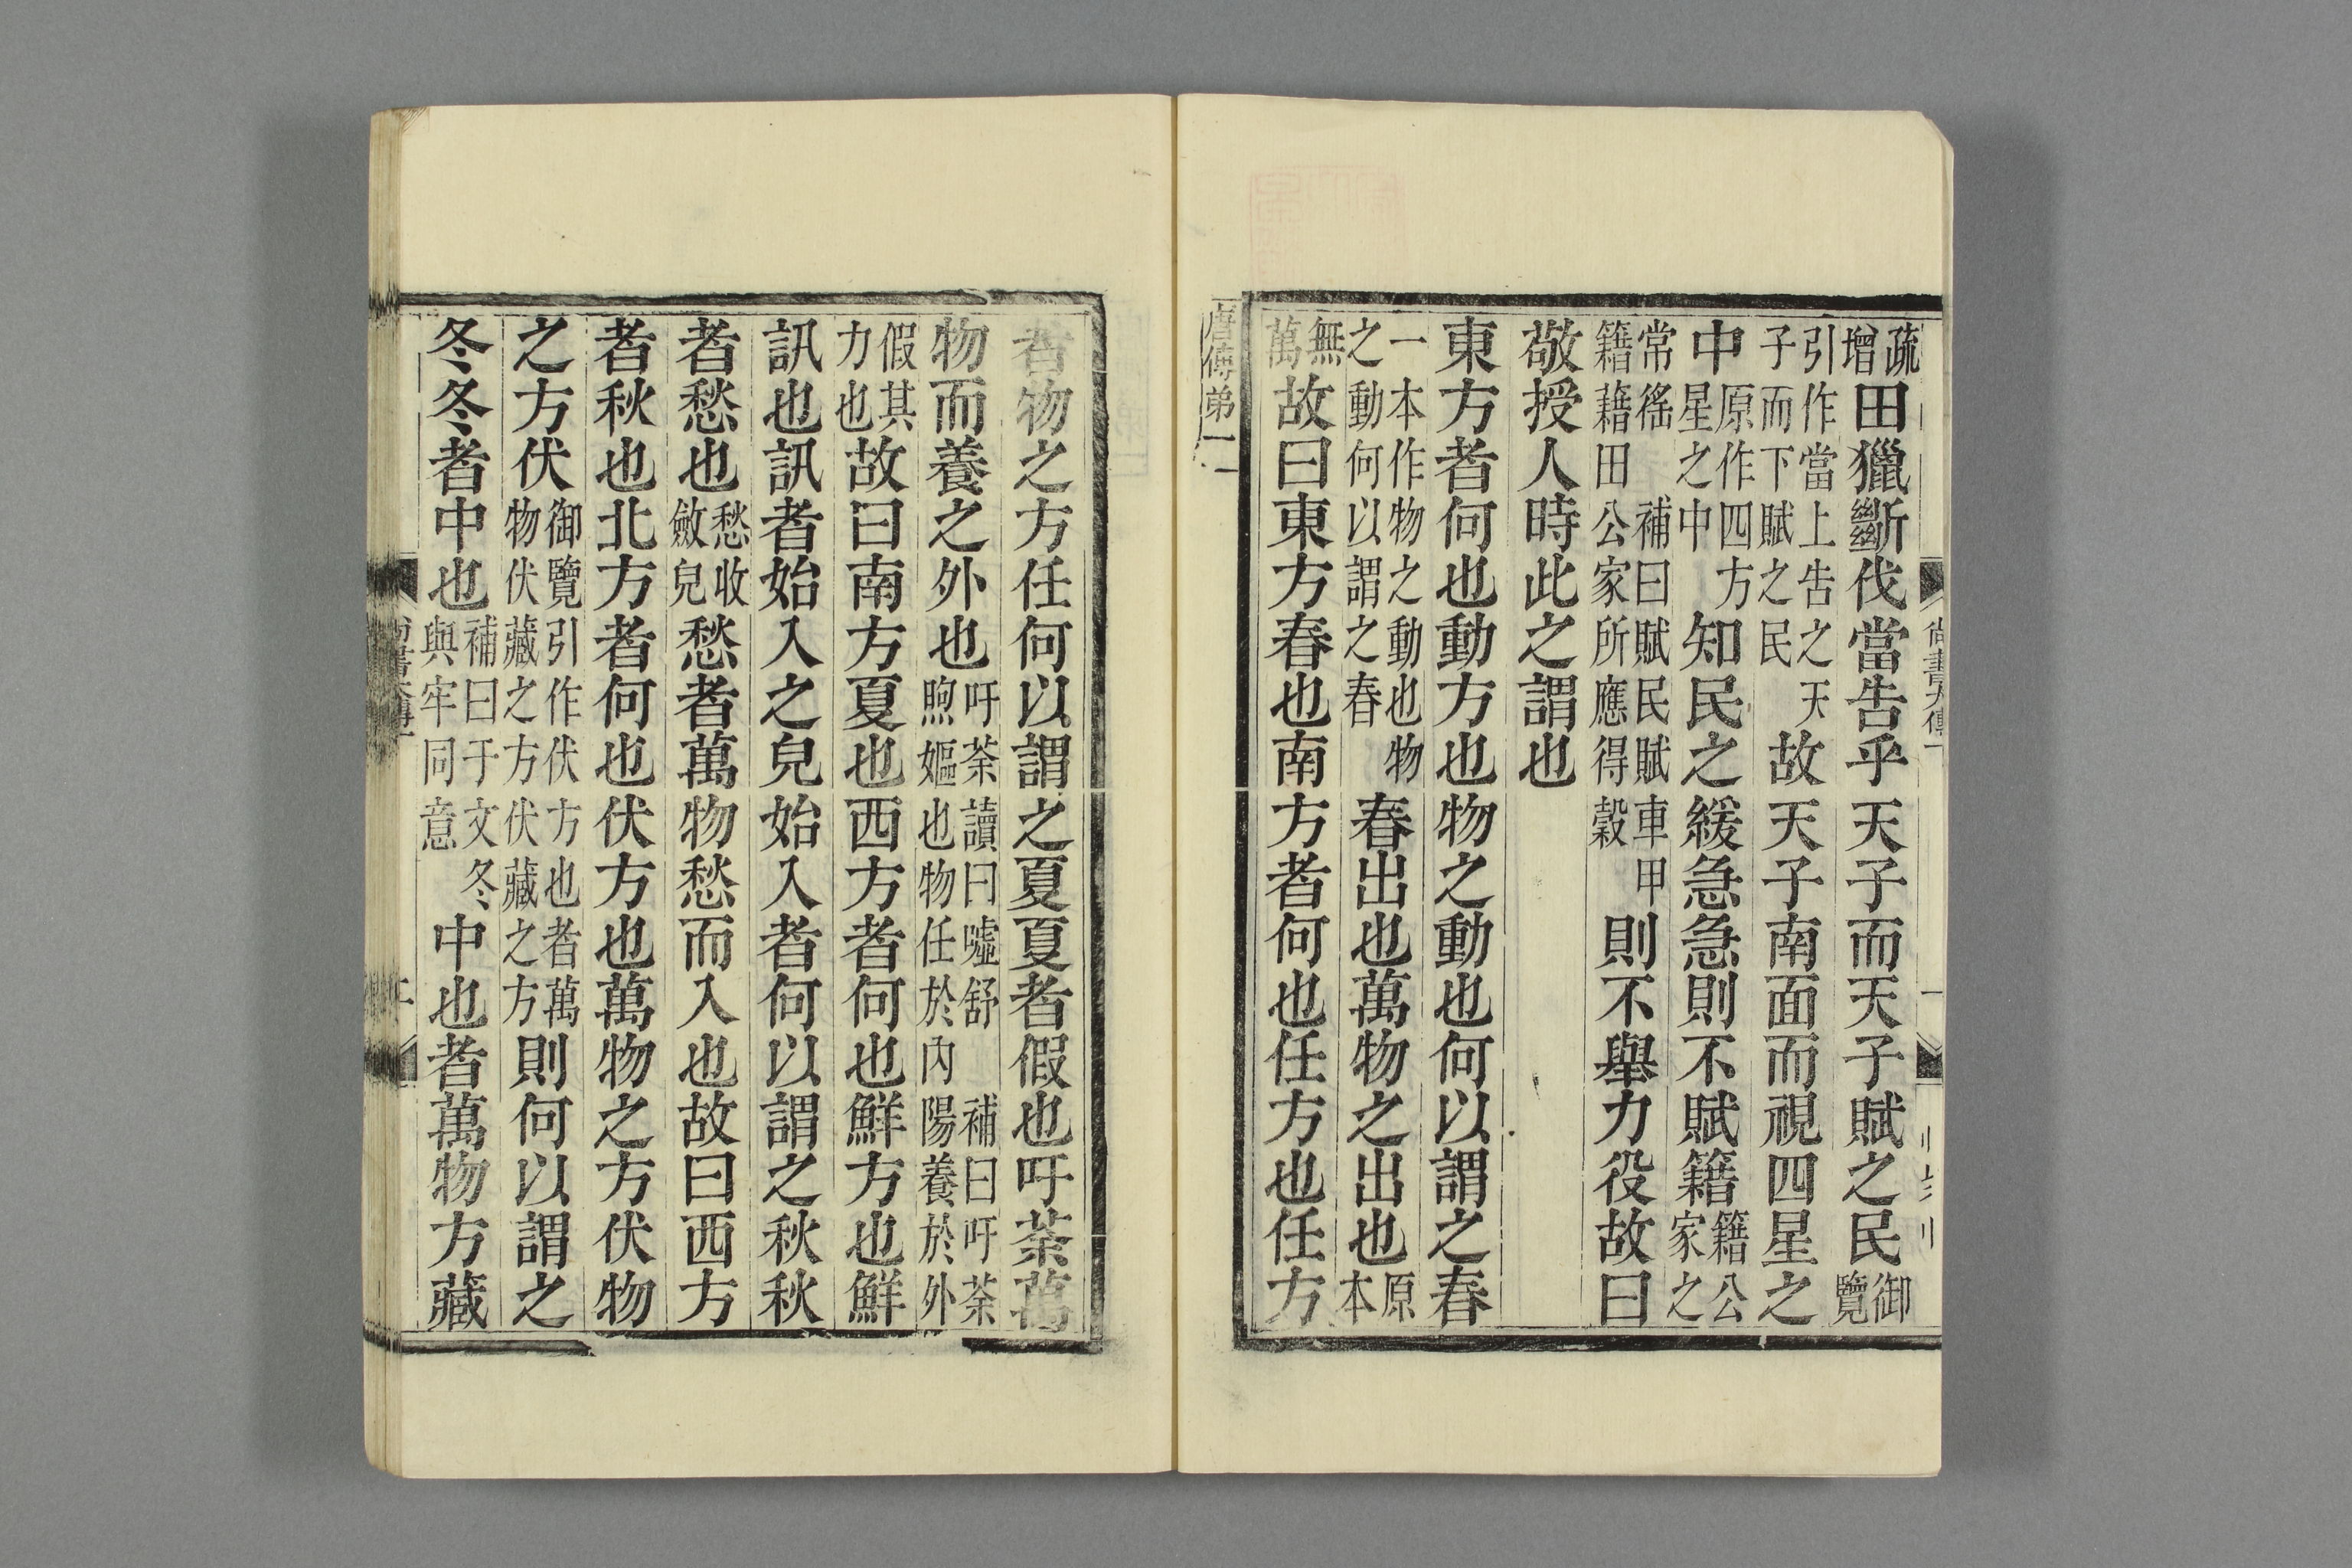 疏增田獵斷伐當告乎天子而天子賦之民御覽
引作當上告之天子而下賦之民故天子南面而視四星之
中原作四方星之中知民之緩急急則不賦籍籍公家之
常徭補曰賦民賦車甲籍藉田公家所應得穀則不舉力役故曰
敬授人時此之謂也
東方者何也動方也物之動也何以謂之春
一本作物之動也物之動何以謂之春春出也萬物之出也原本
無萬故曰東方春也南方者何也任方也任方
唐傳弟一
尚書大傳一
者物之方任何以謂之夏夏者假也吁荼萬
物而養之外也吁荼讀曰噓舒補曰吁荼煦嫗也物任於內陽養於外
假其力也故曰南方夏也西方者何也鮮方也鮮
訊也訊者始入之皃始入者何以謂之秋秋
者愁也愁收斂皃愁者萬物愁而入也故曰西方
者秋也北方者何也伏方也萬物之方伏物
之方伏御覽引作伏方也者萬物伏藏之方伏藏之方則何以謂之
冬冬者中也補曰于文冬與牢同意中也者萬物方藏